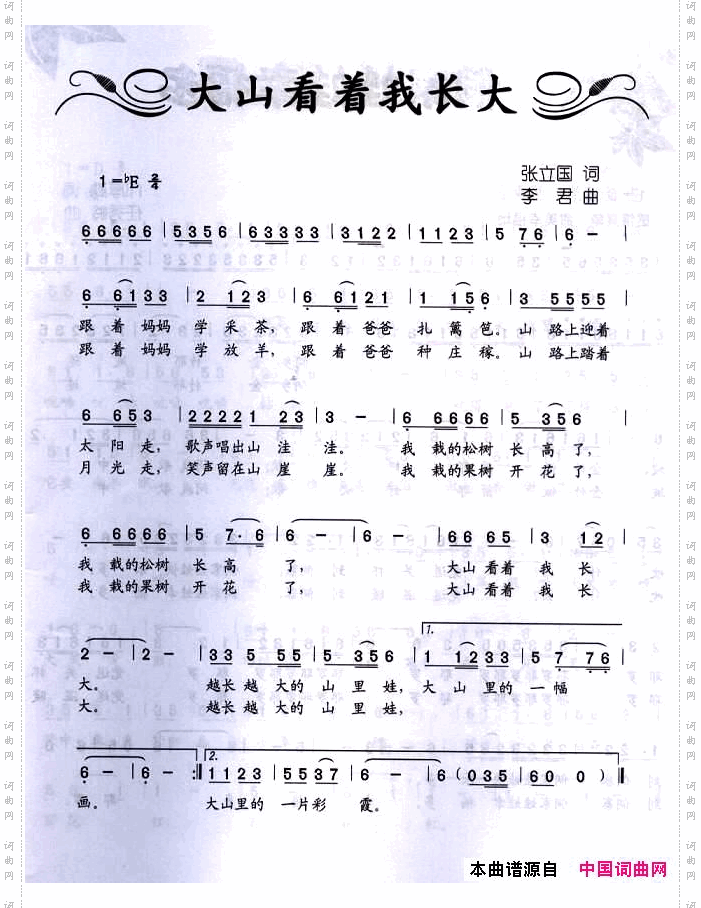 大山看着我长大
1=♭E 2/4
张立国 词
李 君 曲
6 6 6 6 6 | 5 3 5 6 | 6 3 3 3 3 | 3 1 2 2 | 1 1 2 3 | 5 7 6 | 6 - |
6 6 1 3 3 | 2 1 2 3 | 6 6 1 2 1 | 1 1 5 6 | 3 5 5 5 5 |
跟 着 妈妈 学 采 茶， 跟 着 爸爸 扎 篱 笆。 山 路上迎着
跟 着 妈妈 学 放 羊， 跟 着 爸爸 种 庄 稼。 山 路上踏着
6 6 5 3 | 2 2 2 2 1 2 3 | 3 - | 6 6 6 6 6 | 5 3 5 6 |
太 阳 走， 歌声唱出山 洼 洼。 我 栽的松树 长 高 了，
月 光 走， 笑声留在山 崖 崖。 我 栽的果树 开 花 了，
6 6 6 6 6 | 5 7· 6 | 6 - | 6 - | 6 6 6 5 | 3 1 2 |
我 栽的松树 长 高 了， 大山 看着 我 长
我 栽的果树 开 花 了， 大山 看着 我 长
2 - | 2 - | 3 3 5 5 5 | 5 3 5 6 | 1 1 2 3 3 | 5 7 7 6 |
1.
大。 越长 越 大的 山 里 娃， 大 山 里的 一 幅
大。 越长 越 大的 山 里 娃，
6 - | 6 - :‖ 1 1 2 3 | 5 5 3 7 | 6 - | 6 ( 0 3 5 | 6 0 0 ) ‖
2.
画。 大山里的 一片彩 霞。
本曲谱源自 中国词曲网
词曲网